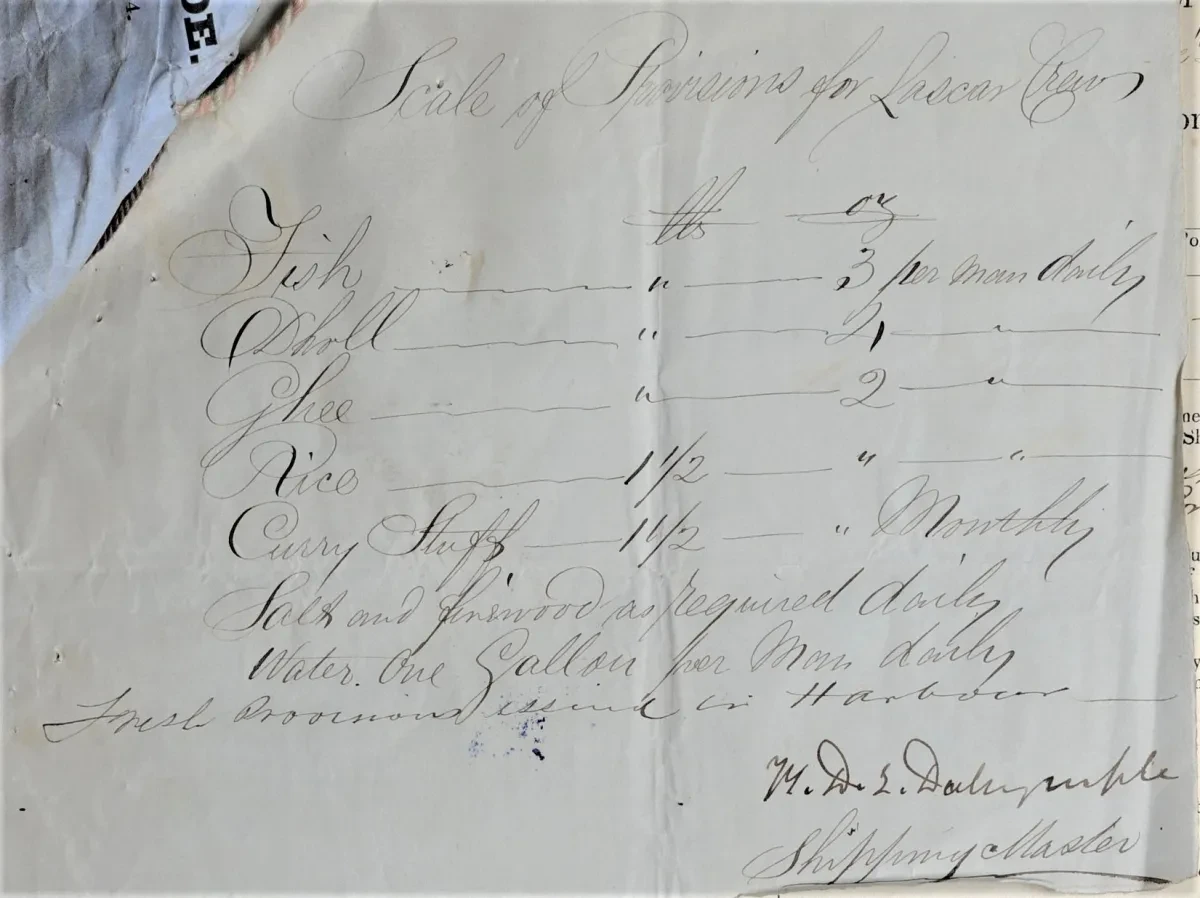 OE.
4.
Scale of Provisions for Lascar Crew
lbs oz
Fish " 3 per man daily
Dholl " 2 "
Ghee " 2 "
Rice 1 1/2 " "
Curry Stuff 1 1/2 " Monthly
Salt and firewood as required daily
Water. One Gallon per Man daily
Fresh Provisions issued in Harbour
D. E. Dalrymple
Shipping Master